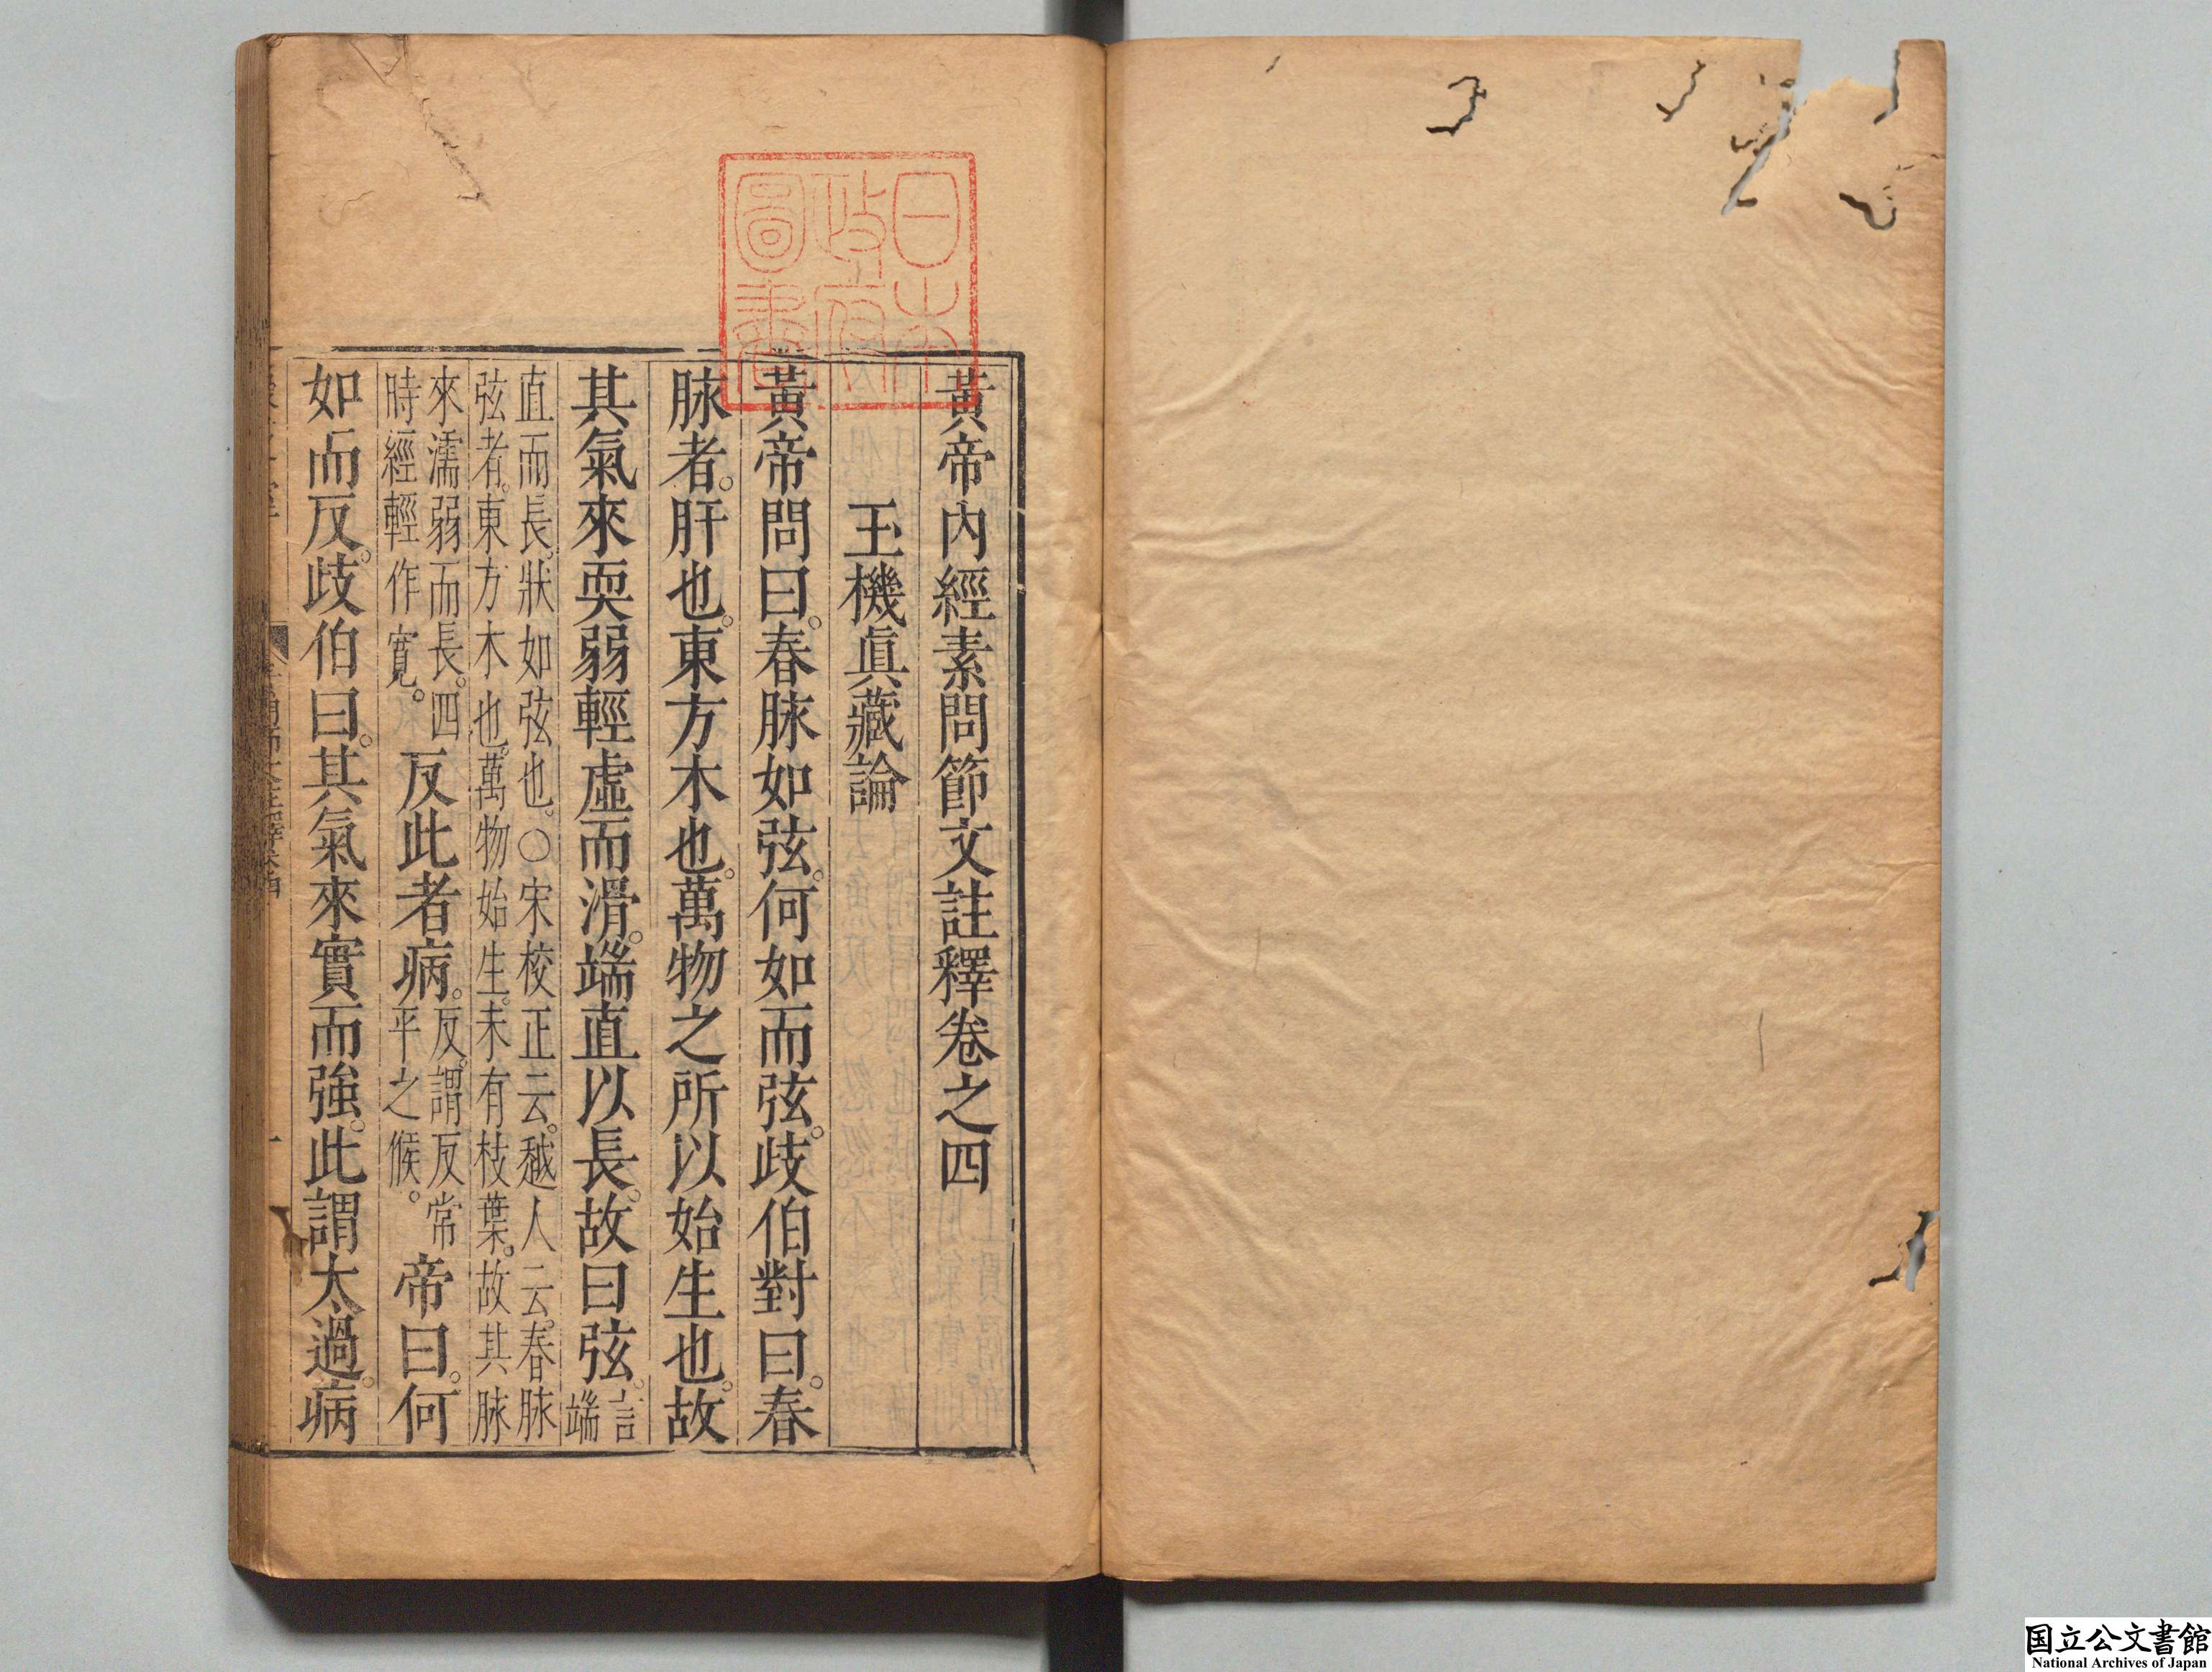 黃帝內經素問節文註釋卷之四
玉機眞藏論
黃帝問曰。春脉如弦。何如而弦。歧伯對曰。春
脉者。肝也。東方木也。萬物之所以始生也。故
其氣來耎弱輕虛而滑。端直以長。故曰弦。言端
直而長。狀如弦也。〇宋校正云。越人云。春脉
弦者。東方木也。萬物始生。未有枝葉。故其脉
來濡弱而長。四時經輕作寬。反此者病。反。謂反常平之候。帝曰。何
如而反。歧伯曰。其氣來實而強。此謂太過。病
日本政府圖書
国立公文書館
National Archives of Japan